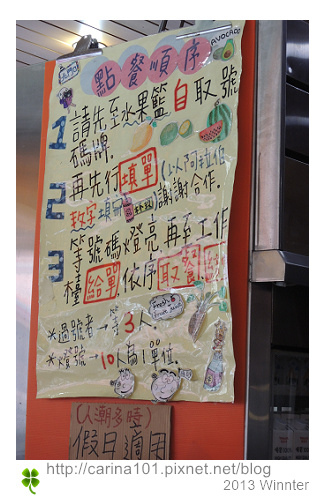 AVOCADO
點餐順序
1 請先至水果籃自取號
碼牌.
2 再先行填單(以阿拉伯
數字填寫)謝謝合作.
3 等號碼燈亮再至工作
檯給單.依序取餐
※過號者→等3人.
※燈號→10人為1單位.
(人潮多時)
假日適用
http://carina101.pixnet.net/blog
2013 Winnter